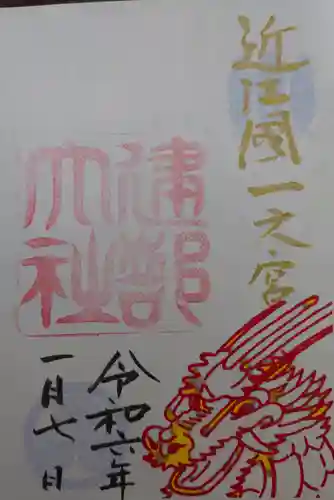 近江国一之宮
建部
大社
令和六年
一月七日